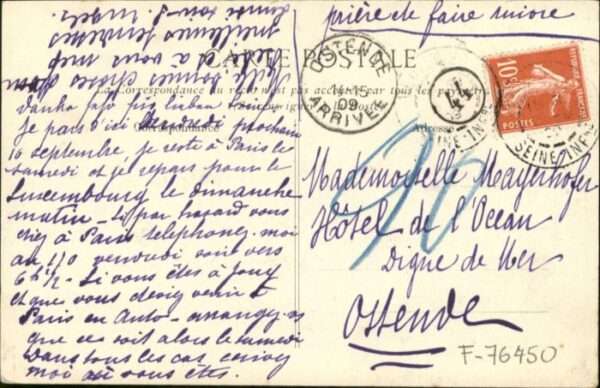 prière de faire suivre
CARTE POSTALE
La Correspondance au recto n'est pas acceptée par tous les pays
Correspondance
Adresse
OSTENDE
14-15
09
ARRIVÉE
10
POSTES
SEINE INFRE
je pars d'ici Vendredi prochain
10 septembre, je reste à Paris le
samedi et je repars pour le
Luxembourg le dimanche
matin - Si par hazard vous
étiez à Paris telephonez-moi
au 170 vendredi soir vers
6h 1/2 - Si vous êtes à
et que vous devez venir à
Paris en Auto - arrangez-vs
que ce soit alors le samedi
Dans tous les cas
moi où vous êtes.
Mille bonnes choses
à vous
meilleures tendresses
Mademoiselle Mayerhofer
Hôtel de l'Océan
Digue de Mer
Ostende
F-76450